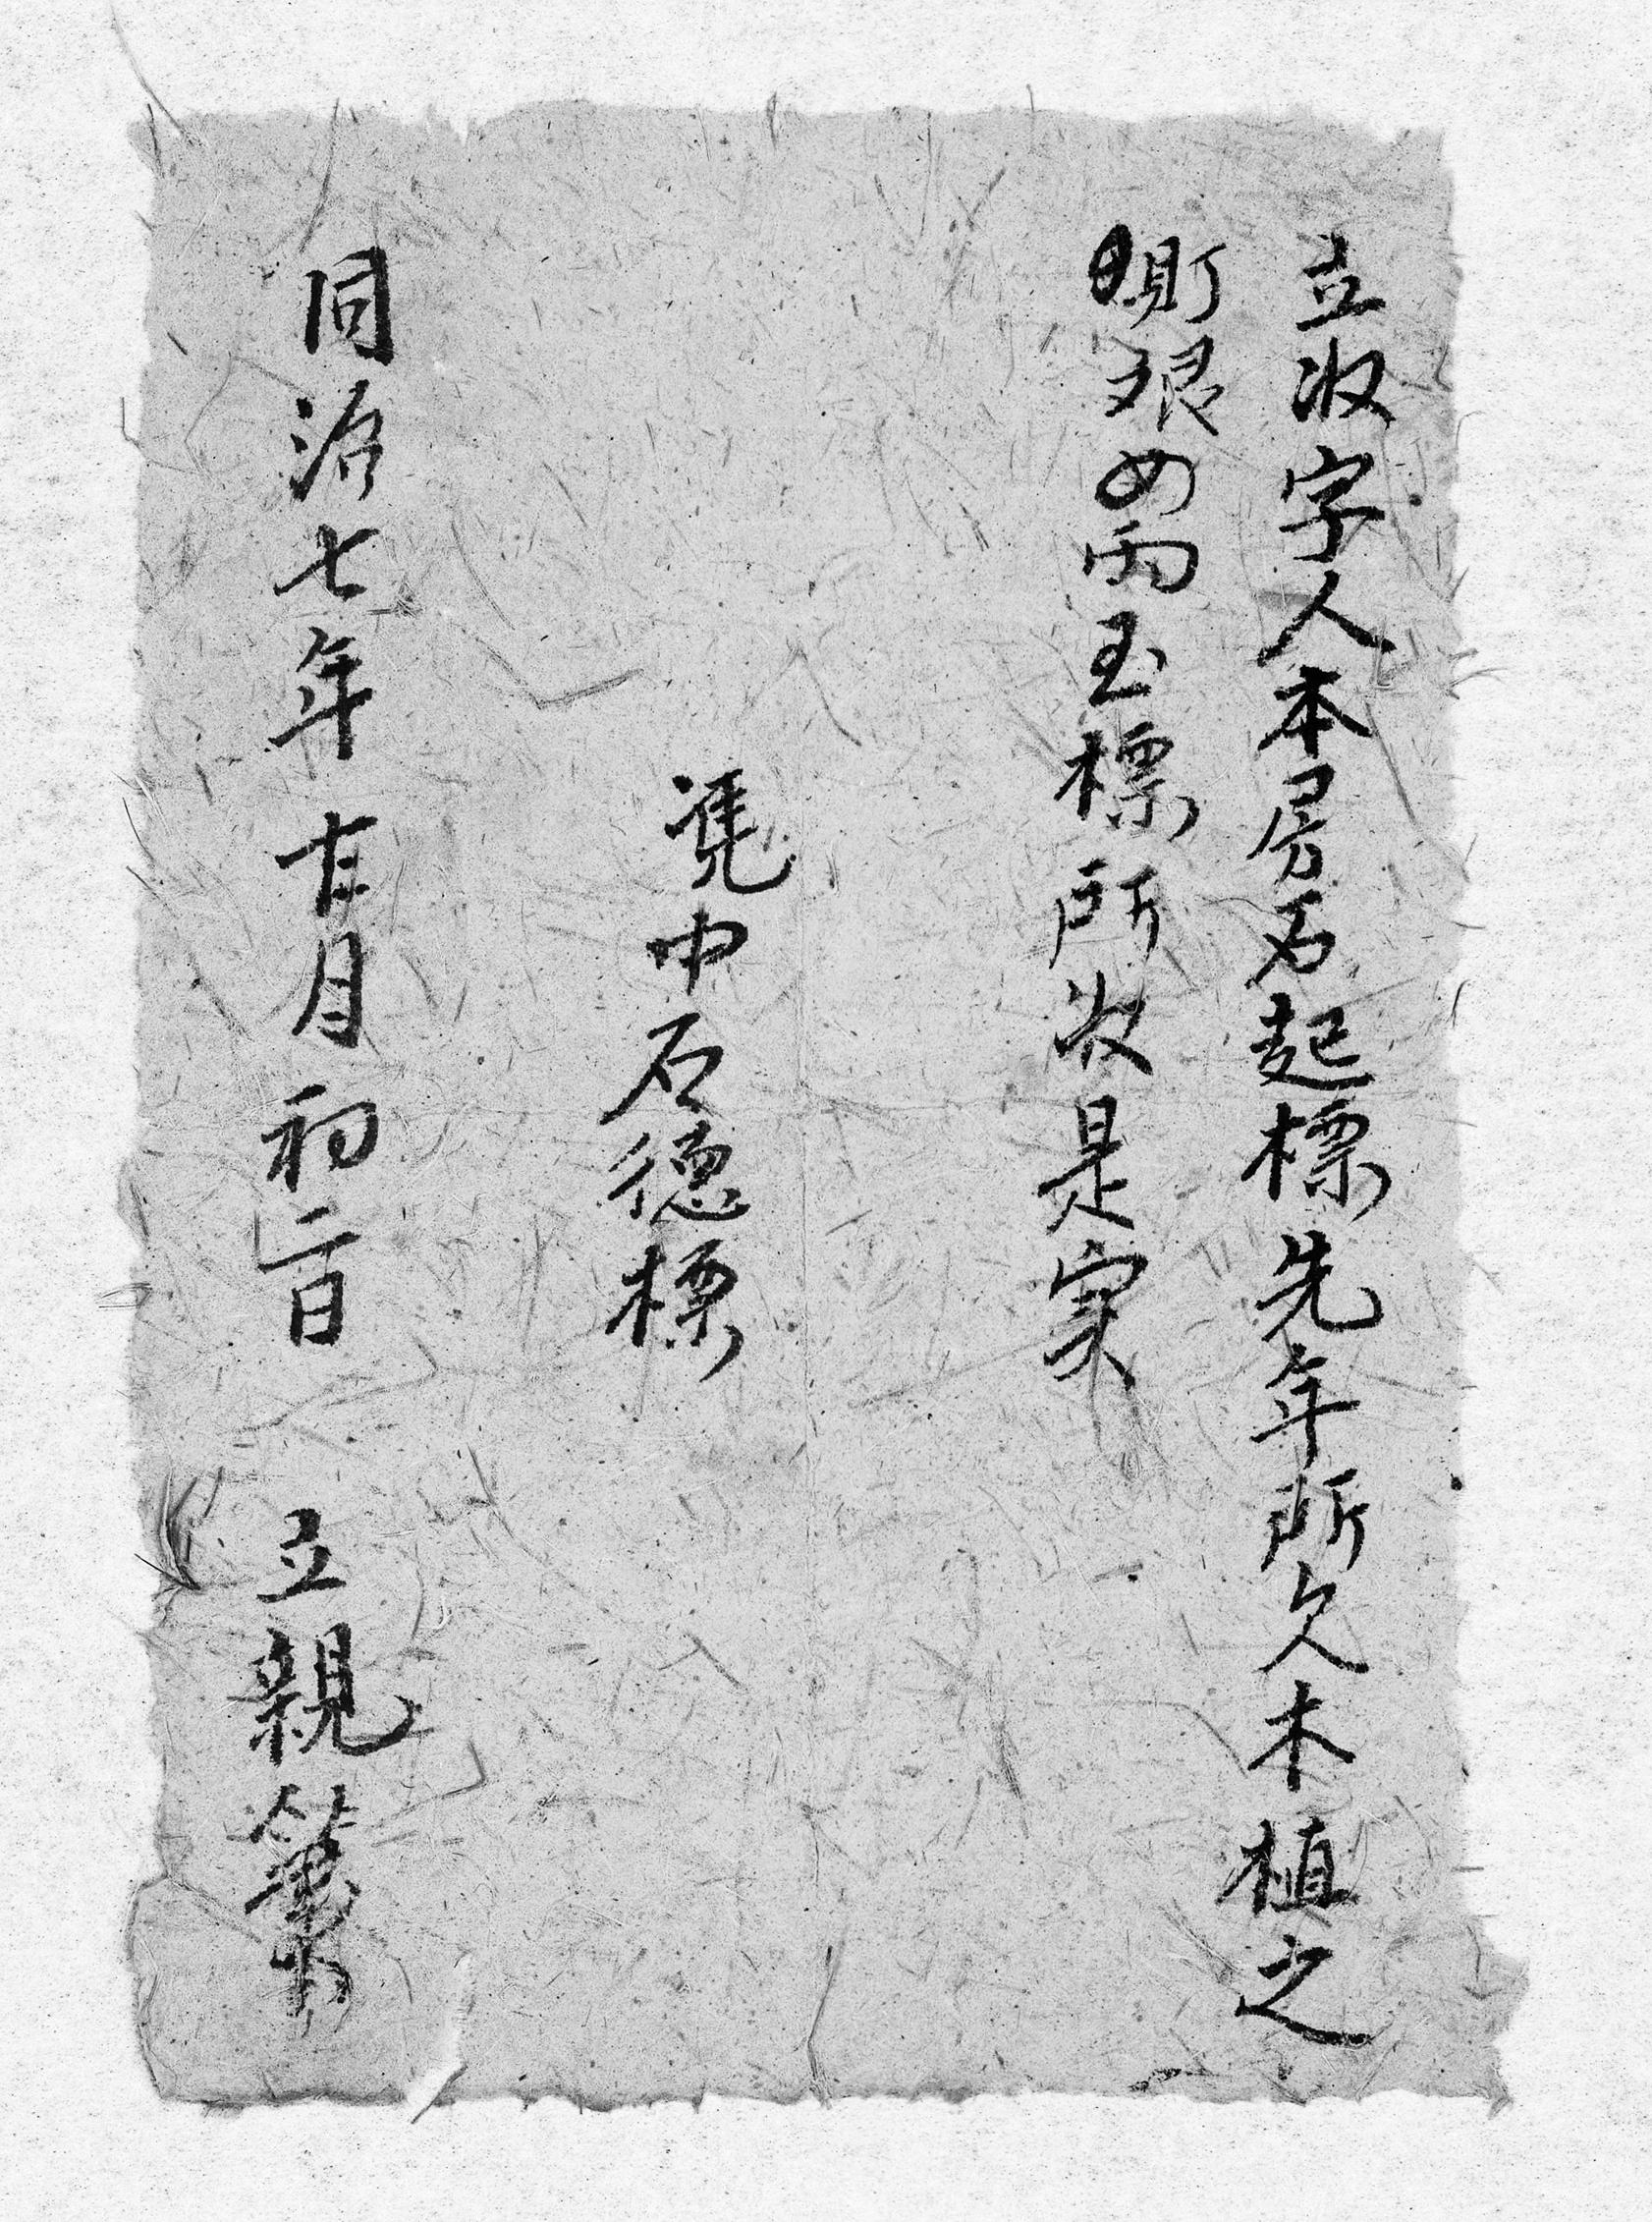 立收字人本房石起標先年所欠木植之
賬銀四両玉標所收是实
凭中石德標
同治七年十一月初二日 立親筆